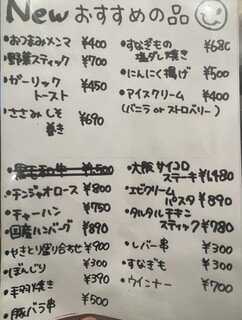 New おすすめの品
・おつまみメンマ ¥400
・野菜スティック ¥700
・ガーリック
トースト ¥450
・ささみしそ
巻き ¥690
・すなぎもの
塩ダレ焼き ¥680
・にんにく揚げ ¥500
・アイスクリーム ¥400
(バニラ or ストロベリー)
・黒毛和牛 ¥1,500
・チンジャオロース ¥800
・チャーハン ¥750
・国産ハンバーグ ¥890
・やきとり盛り合わせ ¥900
・ぼんじり ¥300
・手羽焼き ¥390
・豚バラ串 ¥500
・大阪サイコロ
ステーキ ¥1,480
・エビクリーム
パスタ ¥890
・タルタルチキン
スティック ¥780
・レバー串 ¥300
・すなぎも ¥300
・ウインナー ¥700